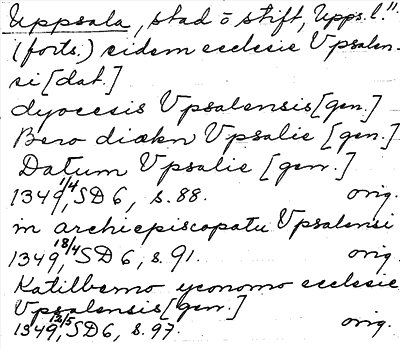 Uppsala, stad o stift, Upps. l."
(forts.) eidem ecclesie Vpsalen-
si [dat.]
dyocesis Vpsalensis [gen.]
Bero diækn Vpsalie [gen.]
Datum Vpsalie [gen.]
1349 1/4, SD 6, s. 88. orig.
in archiepiscopatu Vpsalensi
1349 18/4, SD 6, s. 91. orig.
Katilberno yconomo ecclesie
Vpsalensis [gen.]
1349 12/5, SD 6, s. 97. orig.